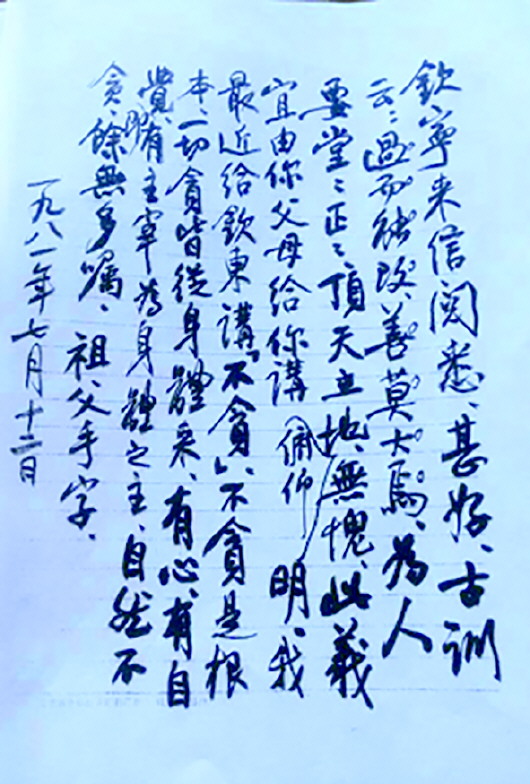 欽寧来信閱悉、甚好、古訓
云:過而能改、善莫大焉、為人
要堂:正:、頂天立地、無愧、此義
俯仰
宜由你父母給你講明、我
最近給欽東講「不貪」、不貪是根
本、一切貪皆從身體来、有心、有自
覺、有主宰為身體之主、自然不
貪、餘無多囑、祖父手字、
一九八一年七月十二日